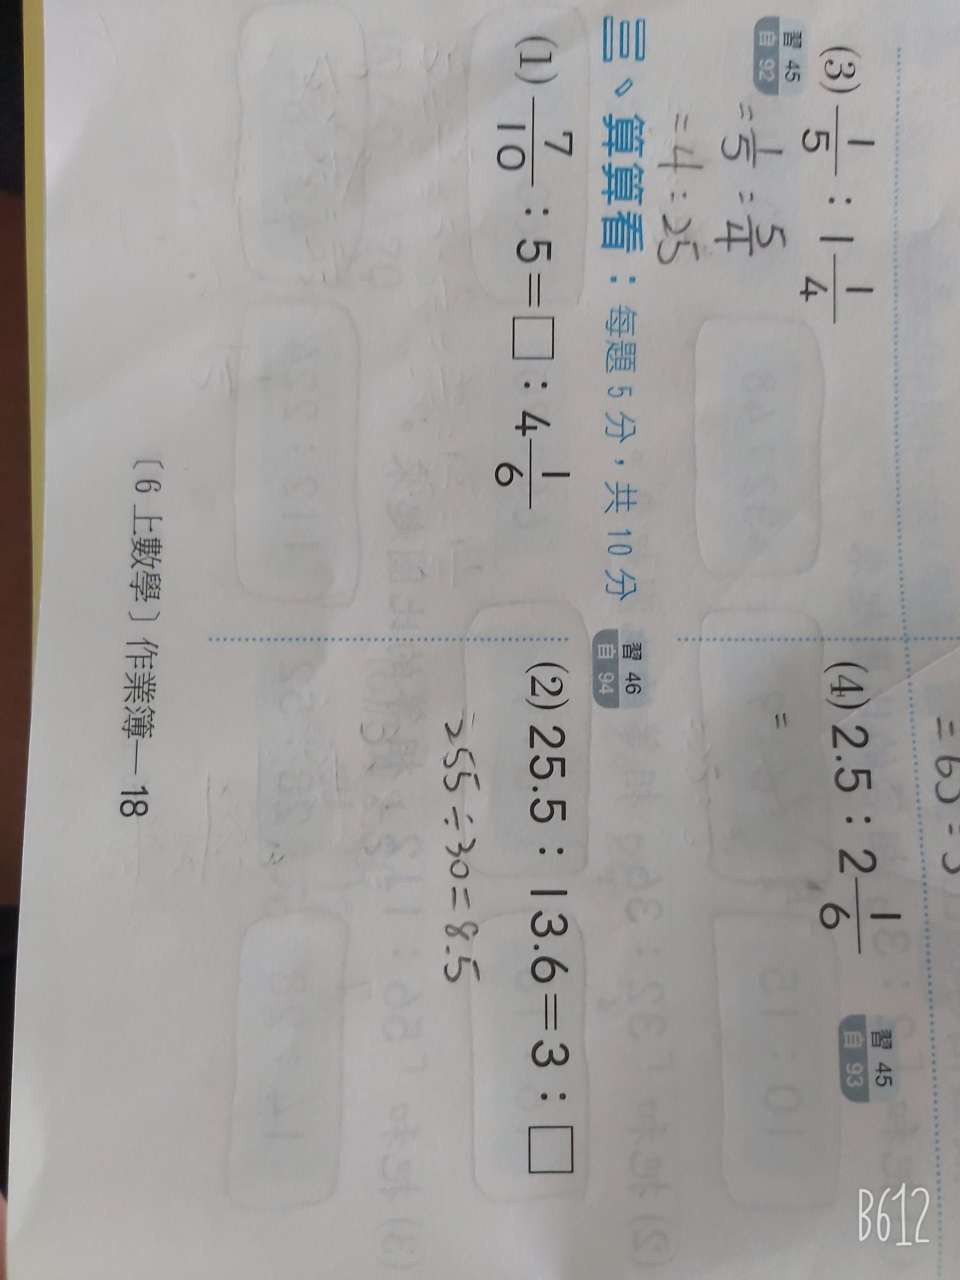 = 65 : 3
(3) 1/5 : 1 1/4
習 45
自 92
= 1/5 : 5/4
= 4 : 25
(4) 2.5 : 2 1/6
習 45
自 93
=
三、算算看：每題 5 分，共 10 分
習 46
自 94
(1) 7/10 : 5 = □ : 4 1/6
(2) 25.5 : 13.6 = 3 : □
255÷30=8.5
〔6 上數學〕作業簿—18
B612